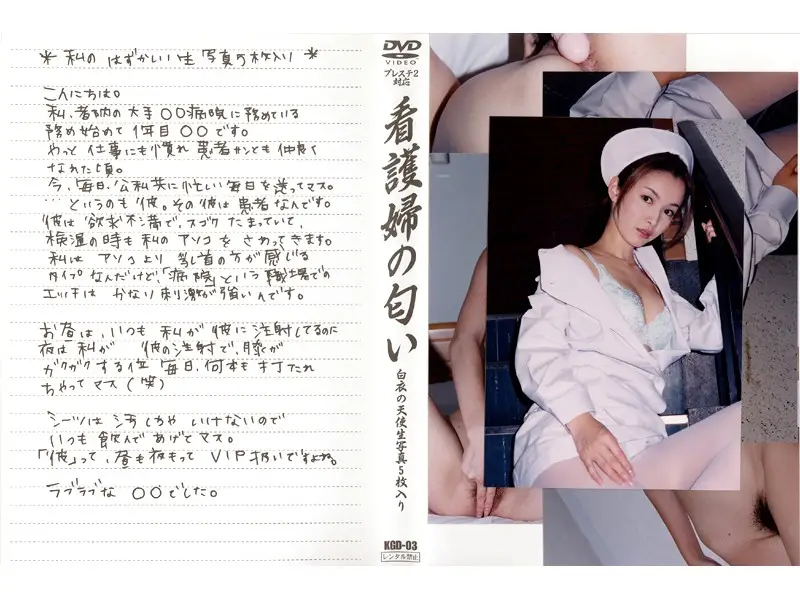 * 私の はずかしい 生 写真5枚入り *
こんにちは。
私、都内の大手 〇〇病院に務めている
務め始めて 1年目 〇〇です。
やっと 仕事にも慣れ 患者サンとも 仲良く
なれた頃。
今、毎日、公私共に忙しい毎日を送ってマス。
…というのも 彼。その彼は患者なんです。
彼は 欲求不満で、スゴク たまっていて、
検温の時も私のアソコを さわってきます。
私は アソコより 乳首の方が 感じる
タイプなんだけど、「病院」という職場での
エッチは かなり刺激が強いんです。
お昼は、いつも 私が 彼に注射してるのに
夜は 私が 彼の注射で、膝が
ガクガクする位 毎日、何本も打たれ
ちゃってマス(笑)
シーツは 汚しちゃ いけないので
いつも 飲んで あげてマス。
「彼」って、昼も夜もって VIP扱いですよね。
ラブラブな 〇〇でした。
DVD
VIDEO
プレステ2
対応
看護婦の匂い
白衣の天使生写真5枚入り
KGD-03
レンタル禁止